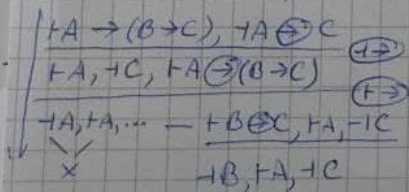 ⊢A → (B→C), ⊣A→C ⊣→
⊢A, ⊣C, ⊢A→(B→C) ⊢→
⊣A, ⊢A, ... — ⊢B→C, ⊢A, ⊣C
× ⊣B, ⊢A, ⊣C